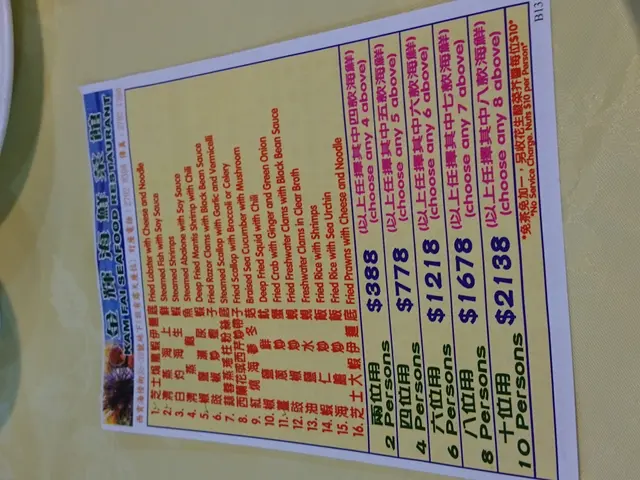 金輝海鮮菜館
KAM FAI SEAFOOD RESTAURANT
1. 芝士焗龍蝦伊麵底 Fried Lobster with Cheese and Noodle
2. 清蒸海上鮮 Steamed Fish with Soy Sauce
3. 白灼海生蝦 Steamed Shrimps
4. 清蒸鮑魚 Steamed Abalone with Soy Sauce
5. 椒鹽瀨尿蝦 Deep Fried Mantis Shrimp with Chili
6. 豉椒炒蟶子 Fried Razor Clams with Black Bean Sauce
7. 蒜蓉蒸瑤柱粉絲底 Steamed Scallop with Garlic and Vermicelli
8. 西蘭花或西芹帶子 Fried Scallop with Broccoli or Celery
9. 紅燒海參冬菇 Braised Sea Cucumber with Mushroom
10. 椒鹽鮮魷 Deep Fried Squid with Chili
11. 薑蔥炒蟹 Fried Crab with Ginger and Green Onion
12. 豉椒炒蜆 Fried Freshwater Clams with Black Bean Sauce
13. 油鹽水蜆 Freshwater Clams in Clear Broth
14. 蝦仁炒飯 Fried Rice with Shrimps
15. 海膽炒飯 Fried Rice with Sea Urchin
16. 芝士大蝦伊麵底 Fried Prawns with Cheese and Noodle
兩位用 $388 (以上任擇其中四款海鮮)
2 Persons (choose any 4 above)
四位用 $778 (以上任擇其中五款海鮮)
4 Persons (choose any 5 above)
六位用 $1218 (以上任擇其中六款海鮮)
6 Persons (choose any 6 above)
八位用 $1678 (以上任擇其中七款海鮮)
8 Persons (choose any 7 above)
十位用 $2138 (以上任擇其中八款海鮮)
10 Persons (choose any 8 above)
*免茶免加一，另收花生醬菜芥醬每位$10*
*No Service Charge, Nuts $10 per Person*
B13